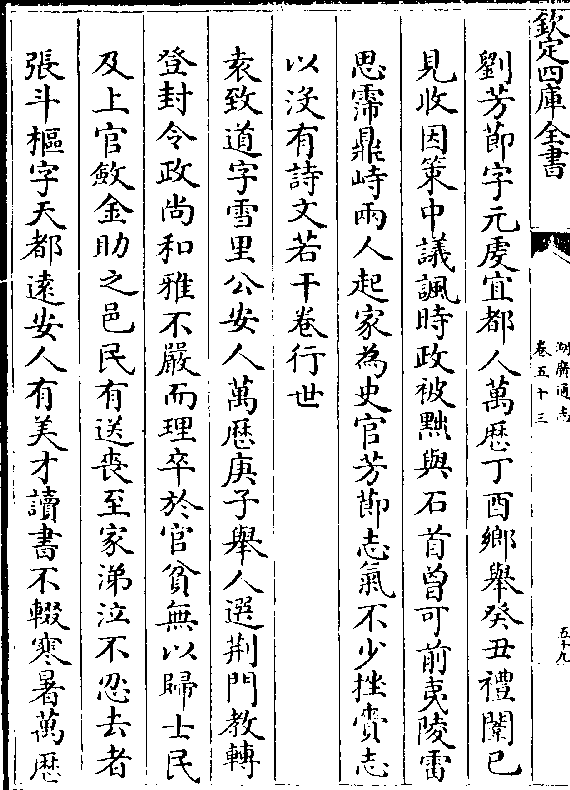 欽定四庫全書
湖廣通志
卷五十三
五十九
劉芳節字元度宜都人萬厯丁酉鄉舉癸丑禮闈已
見收因策中議諷時政被黜與石首曾可前夷陵雷
思霈鼎峙兩人起家為史官芳節志氣不少挫賫志
以沒有詩文若干卷行世
袁致道字雪里公安人萬厯庚子舉人選荆門教轉
登封令政尚和雅不嚴而理卒於官貧無以歸士民
及上官斂金助之邑民有送喪至家涕泣不忍去者
張斗樞字天都逺安人有美才讀書不輟寒暑萬厯